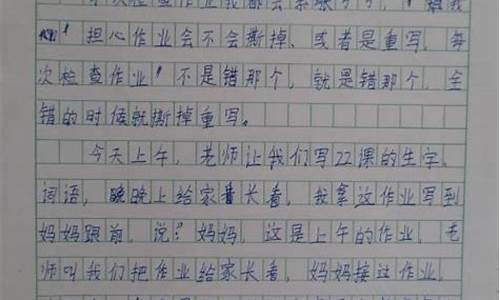 次检查作业我都会
担心作业会不会撕掉、或者是重写。每
次检查作业,不是错那个,就是错那个,全
错的时候就撕掉重写。
今天上午,老师让我们写22课的生字、
词语,晚上给家长看,我拿这作业写到
妈妈跟前,说:"妈妈,这是上午的作业,老
师叫我们把作业给家长看,妈妈接过作业,